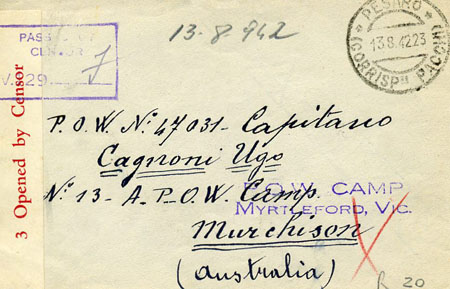 13-8-942
PASSED BY
CENSOR
V. 329
7
PESARO
13.8.42 23
(CORRISP. PACCHI)
3 Opened by Censor
P.O.W. Nº 47031 - Capitano
Cagnoni Ugo
Nº 13 - A - P.O.W. Camp.
P.O.W. CAMP
MYRTLEFORD, VIC.
Murchison
(Australia)
R 20